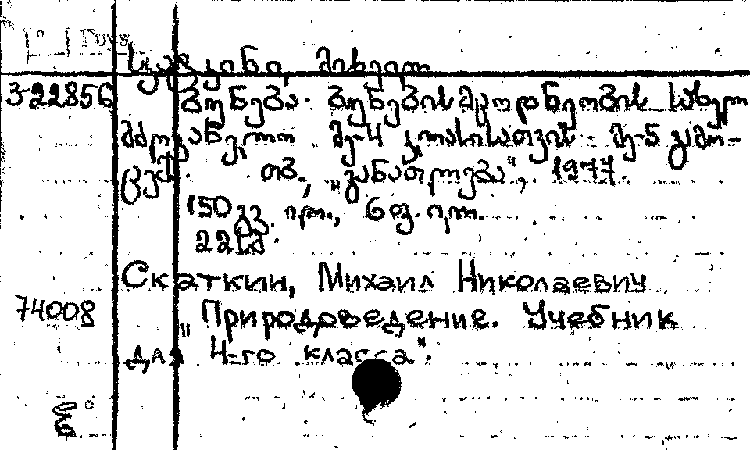 სკატკინი, მიხეილ
3-22856 ბუნება. ბუნებისმცოდნეობის სახელ-
მძღვანელო მე-4 კლასისათვის. მე-5 გამო-
ცემ. თბ., „განათლება", 1977.
150 გვ. ილ., 6 ფ. ილ.
Скаткин, Михаил Николаевич
74008 „Природоведение. Учебник
для 4-го класса".